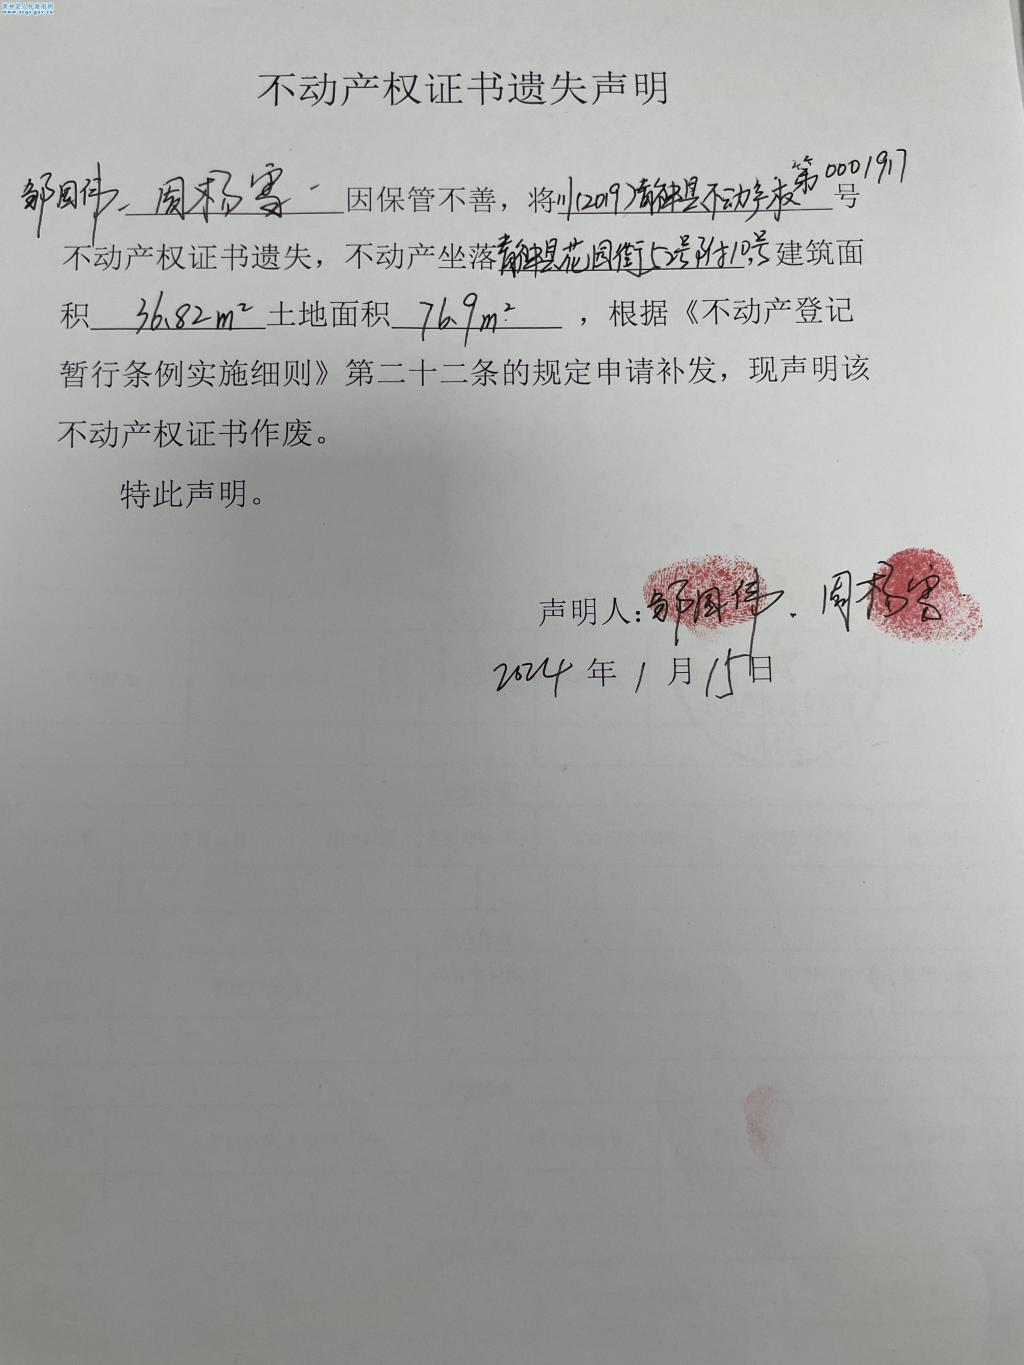 青神县人民政府网
www.scqs.gov.cn
不动产权证书遗失声明
邹国伟、周杨雪 因保管不善，将川(2019)青神县不动产权第0001917号
不动产权证书遗失，不动产坐落青神县花园街52号附10号建筑面
积 36.82m² 土地面积 76.9m² ，根据《不动产登记
暂行条例实施细则》第二十二条的规定申请补发，现声明该
不动产权证书作废。
特此声明。
声明人：邹国伟、周杨雪
2024 年 1 月 15 日